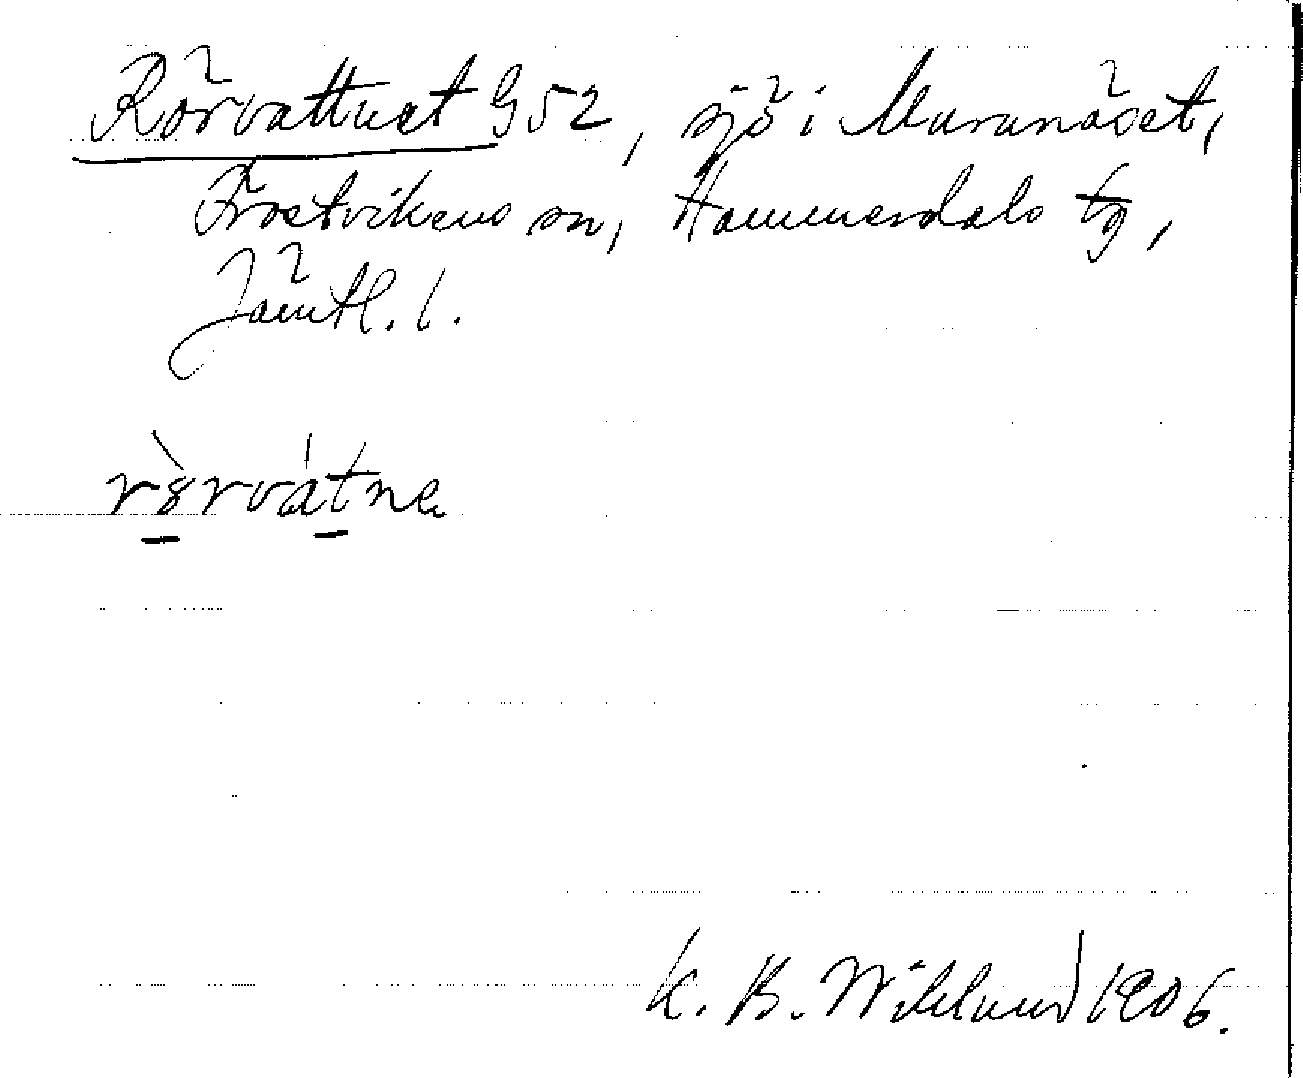 Rörvattnet G52, sjö i Murunäset,
Frostvikens sn, Hammerdals tg,
Jämtl. l.
K. B. Wiklund 1906.